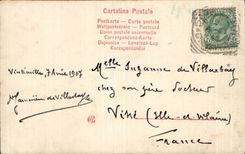 Cartolina Postale
Postkarte - Carte postale
Weltpostverein - Postcard
Union postale universelle
Correspondenz-Karte
Dopisnice - Levelező-Lap
Korespondentní
Vintimille 7 Avril 1907
Melle Suzanne de Villartay
chez son père Docteur
Vitré (Ille-et-Vilaine)
France